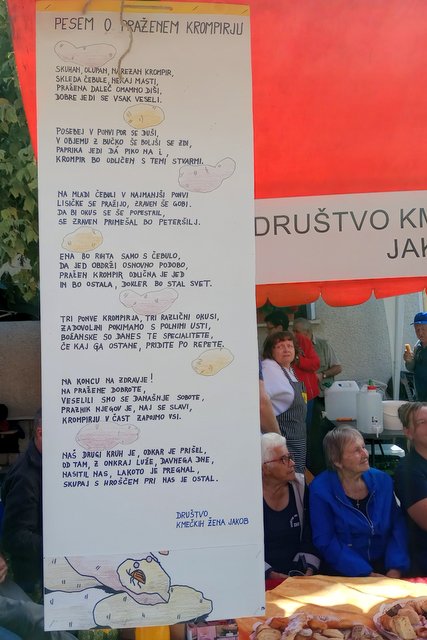 PESEM O PRAŽENEM KROMPIRJU
SKUHAN, OLUPAN, NAREZAN KROMPIR,
SKLEDA ČEBULE, NEKAJ MASTI,
PRAŽENA DALEČ OMAMNO DIŠI,
DOBRE JEDI SE VSAK VESELI.
POSEBEJ V PONVI POR SE DUŠI,
V OBJEMU Z BUČKO ŠE BOLJŠI SE ZDI,
PAPRIKA JEDI DÁ PIKO NA i,
KROMPIR BO ODLIČEN S TEMI STVARMI.
NA MLADI ČEBULI V NAJMANJŠI PONVI
LISIČKE SE PRAŽIJO, ZRAVEN ŠE GOBI.
DA BI OKUS SE ŠE POPESTRIL,
SE ZRAVEN PRIMEŠAL BO PETERŠILJ.
ENA BO RIHTA SAMO S ČEBULO,
DA JED OBDRŽI OSNOVNO PODOBO,
PRAŽEN KROMPIR ODLIČNA JE JED
IN BO OSTALA, DOKLER BO STAL SVET.
TRI PONVE KROMPIRJA, TRI RAZLIČNI OKUSI,
ZADOVOLJNI POKIMAMO S POLNIMI USTI,
BOŽANSKE SO DANES TE SPECIALITETE,
ČE KAJ GA OSTANE, PRIDITE PO REPETE.
NA KONCU NA ZDRAVJE!
NA PRAŽENE DOBROTE,
VESELILI SMO SE DANAŠNJE SOBOTE,
PRAZNIK NJEGOV JE, NAJ SE SLAVI,
KROMPIRJU V ČAST ZAPOJMO VSI.
NAŠ DRUGI KRUH JE, ODKAR JE PRIŠEL,
OD TAM, Z ONKRAJ LUŽE, DAVNEGA DNE,
NASITIL NAS, LAKOTO JE PREGNAL,
SKUPAJ S HROŠČEM PRI NAS JE OSTAL.
DRUŠTVO
KMEČKIH ŽENA JAKOB
DRUŠTVO KM
JAK